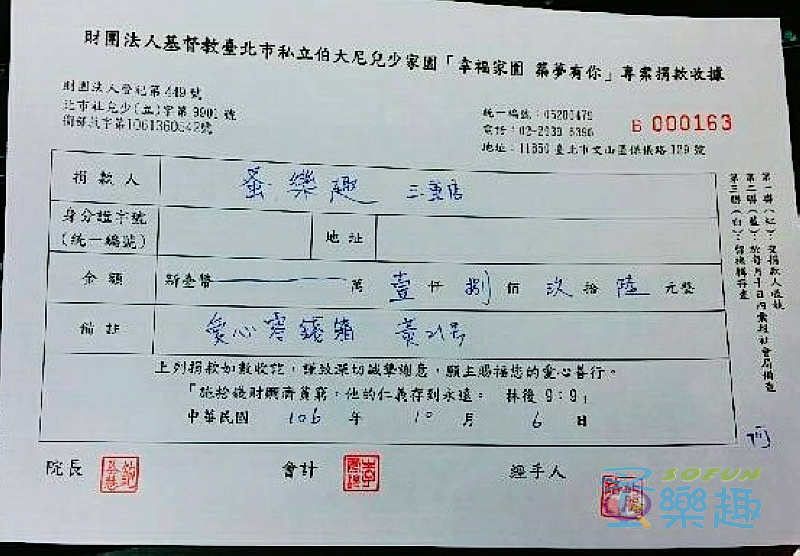 財團法人基督教臺北市私立伯大尼兒少家園「幸福家園 築夢有你」專案捐款收據
財團法人登記第449號
北市社兒少(立)字第9901號
統一編號：05200479
電話：02-2939-6396
地址：11650臺北市文山區保儀路129號
B 000163
捐款人 蚤樂趣 三重店
身分證字號
(統一編號)
地址
金額 新臺幣 萬 壹 仟 捌 佰 玖 拾 陸 元整
備註 愛心零錢箱 黃
上列捐款如數收訖，謹致深切誠摯謝意，願主賜福您的愛心善行。
「施捨錢財賙濟貧窮，他的仁義存到永遠。 林後 9：9」
中華民國 106 年 10 月 6 日
第一聯(紅)：交捐款人收執
第二聯(藍)：於每月十日內彙報社會局備查
第三聯(白)：留機構存查
院長
會計
經手人
SOFUN
樂趣